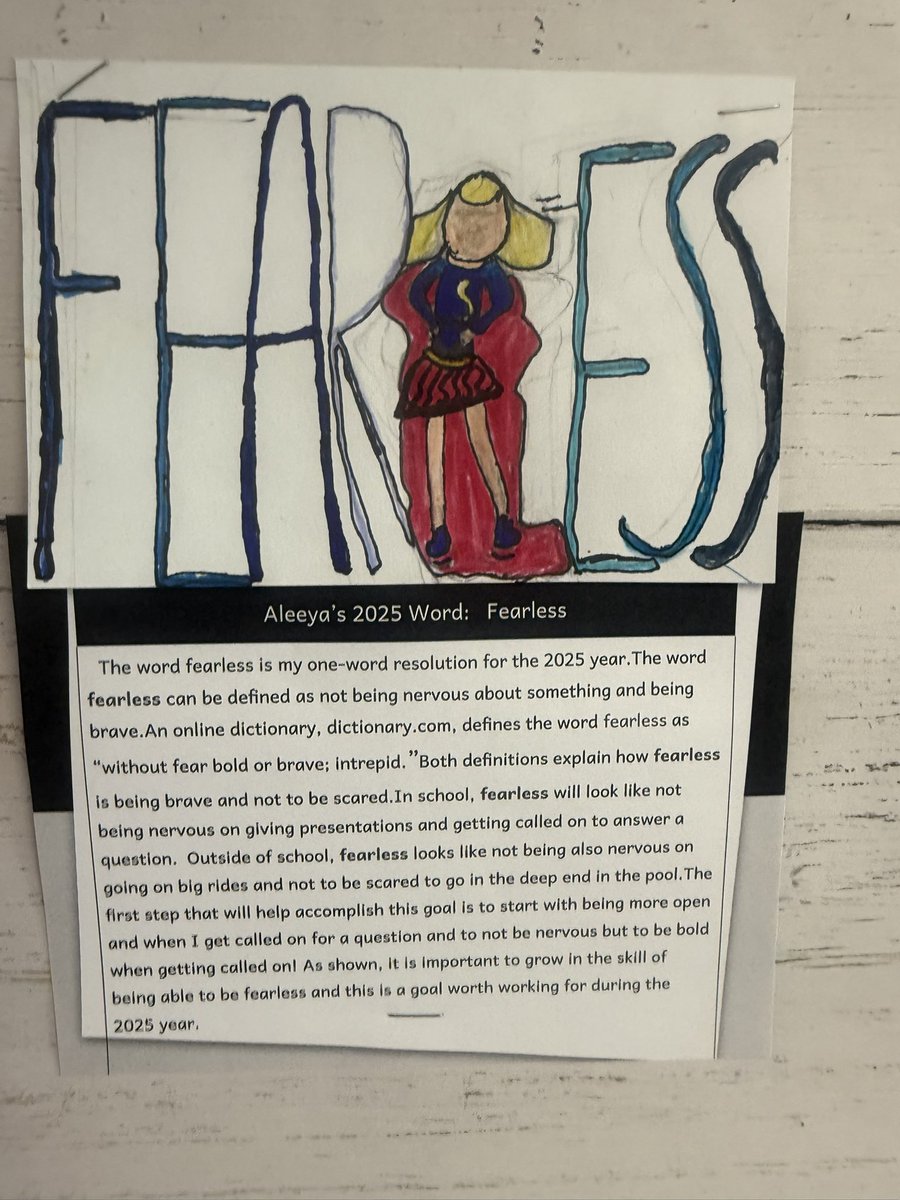 FEARLESS
Aleeya's 2025 Word: Fearless
The word fearless is my one-word resolution for the 2025 year.The word
fearless can be defined as not being nervous about something and being
brave.An online dictionary, dictionary.com, defines the word fearless as
“without fear bold or brave; intrepid.”Both definitions explain how fearless
is being brave and not to be scared.In school, fearless will look like not
being nervous on giving presentations and getting called on to answer a
question. Outside of school, fearless looks like not being also nervous on
going on big rides and not to be scared to go in the deep end in the pool.The
first step that will help accomplish this goal is to start with being more open
and when I get called on for a question and to not be nervous but to be bold
when getting called on! As shown, it is important to grow in the skill of
being able to be fearless and this is a goal worth working for during the
2025 year.